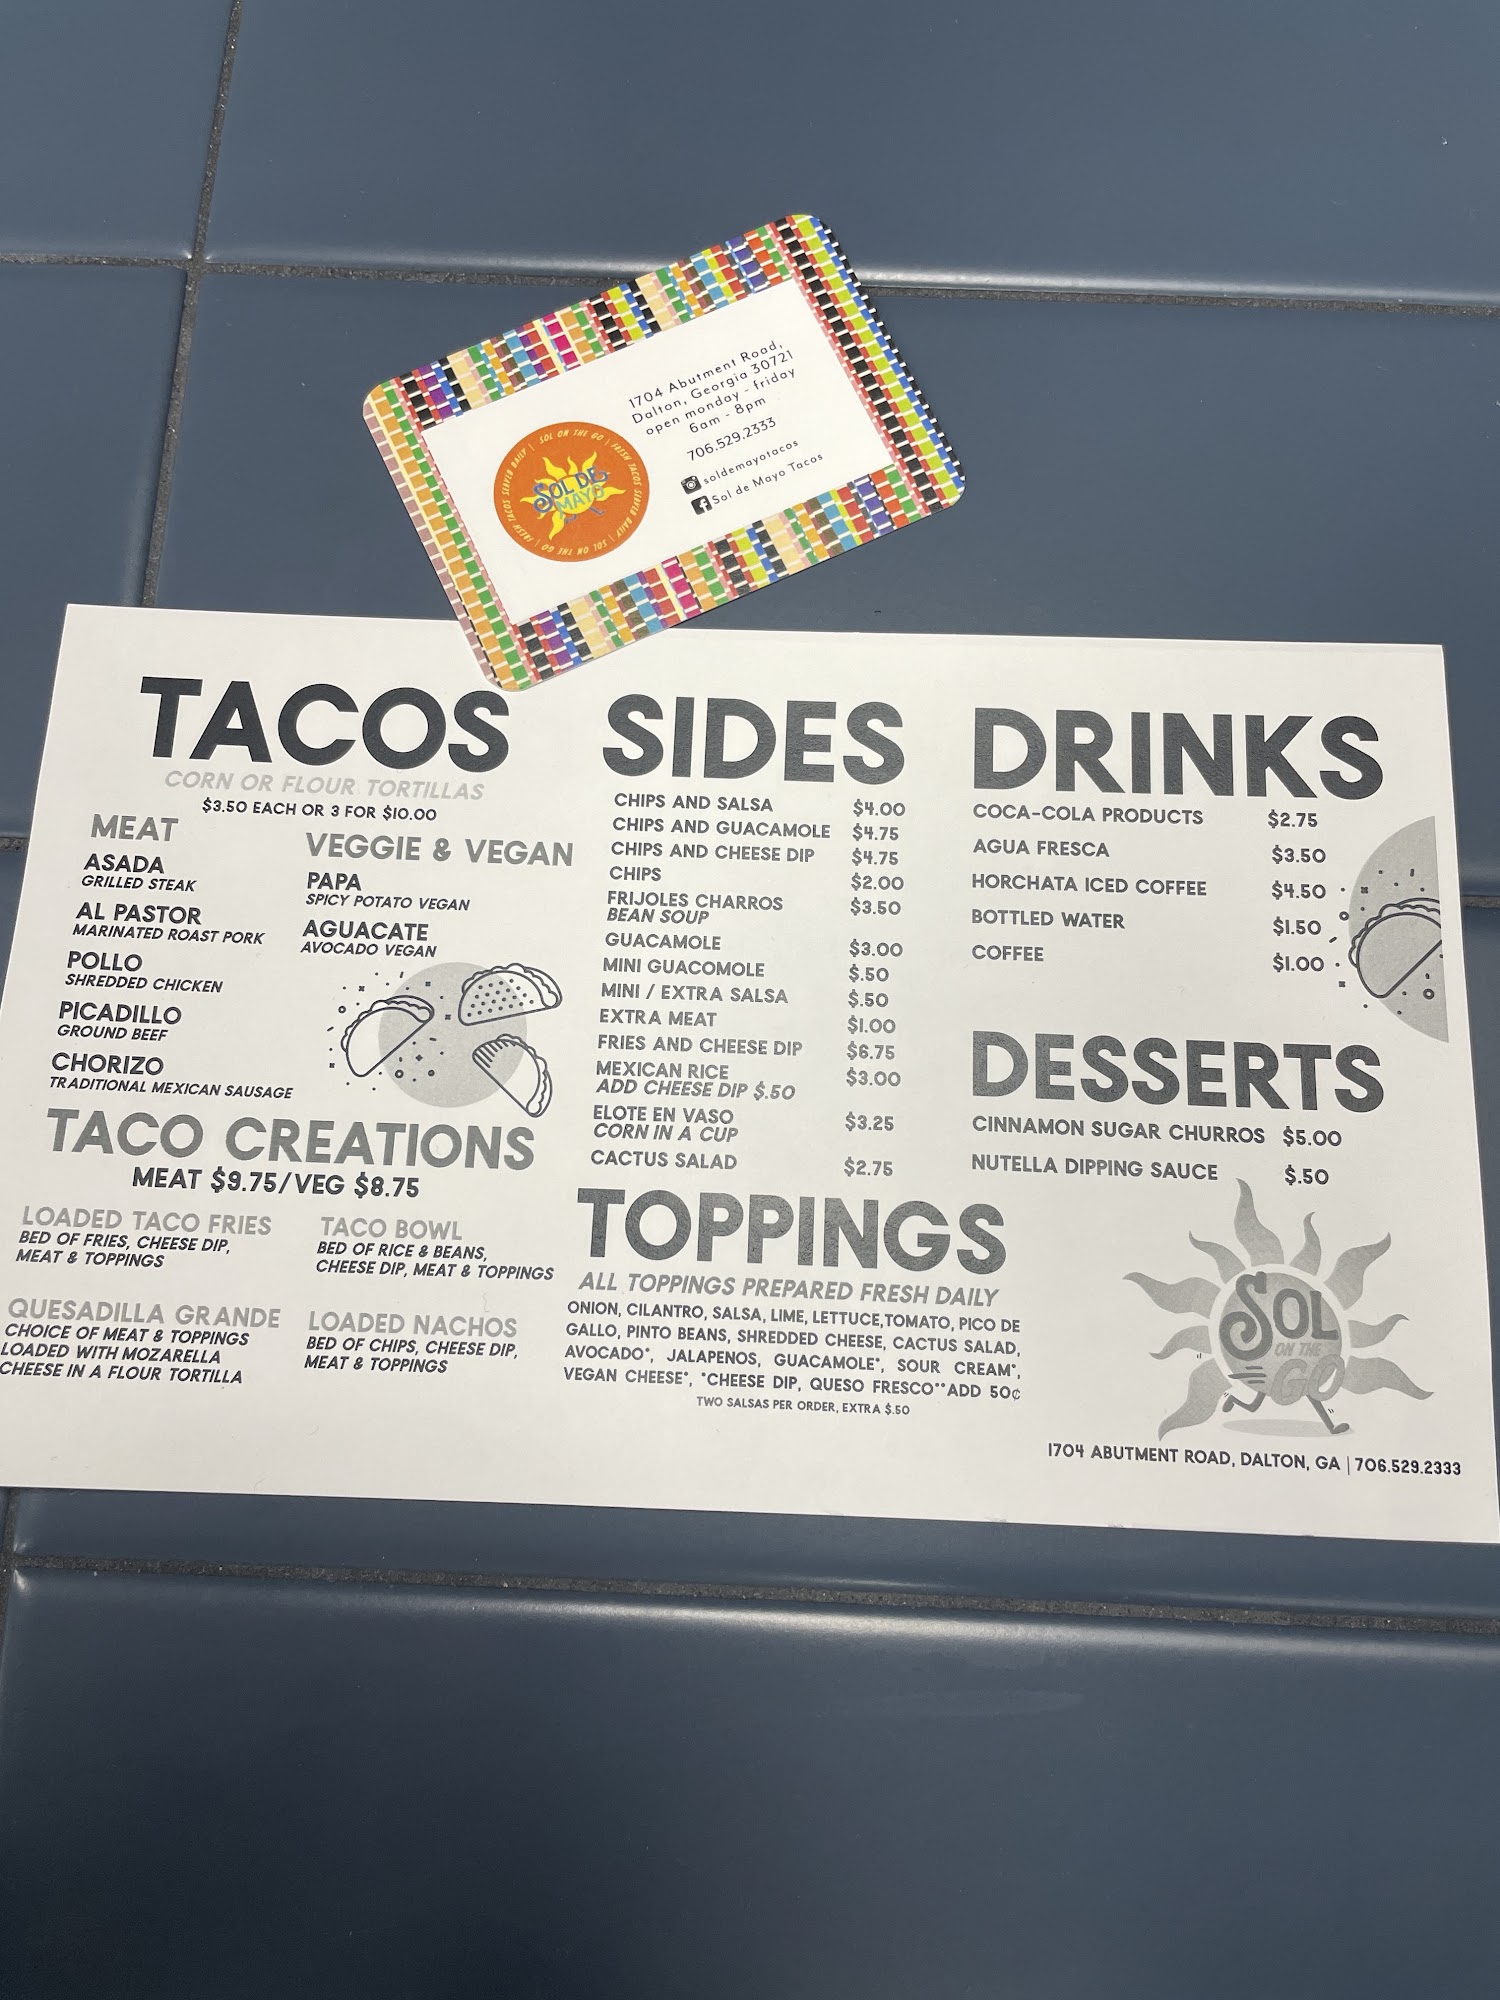 1704 Abutment Road,
Dalton, Georgia 30721
open monday - friday
6am - 8pm
706.529.2333
soldemayotacos
Sol de Mayo Tacos
SOL DE
MAYO
SOL ON THE GO | FRESH TACOS SERVED DAILY | SOL ON THE GO | FRESH TACOS SERVED DAILY |
TACOS
CORN OR FLOUR TORTILLAS
$3.50 EACH OR 3 FOR $10.00
MEAT
ASADA
GRILLED STEAK
AL PASTOR
MARINATED ROAST PORK
POLLO
SHREDDED CHICKEN
PICADILLO
GROUND BEEF
CHORIZO
TRADITIONAL MEXICAN SAUSAGE
VEGGIE & VEGAN
PAPA
SPICY POTATO VEGAN
AGUACATE
AVOCADO VEGAN
TACO CREATIONS
MEAT $9.75/VEG $8.75
LOADED TACO FRIES
BED OF FRIES, CHEESE DIP,
MEAT & TOPPINGS
TACO BOWL
BED OF RICE & BEANS,
CHEESE DIP, MEAT & TOPPINGS
QUESADILLA GRANDE
CHOICE OF MEAT & TOPPINGS
LOADED WITH MOZARELLA
CHEESE IN A FLOUR TORTILLA
LOADED NACHOS
BED OF CHIPS, CHEESE DIP,
MEAT & TOPPINGS
SIDES
CHIPS AND SALSA $4.00
CHIPS AND GUACAMOLE $4.75
CHIPS AND CHEESE DIP $4.75
CHIPS $2.00
FRIJOLES CHARROS $3.50
BEAN SOUP
GUACAMOLE $3.00
MINI GUACOMOLE $.50
MINI / EXTRA SALSA $.50
EXTRA MEAT $1.00
FRIES AND CHEESE DIP $6.75
MEXICAN RICE $3.00
ADD CHEESE DIP $.50
ELOTE EN VASO $3.25
CORN IN A CUP
CACTUS SALAD $2.75
TOPPINGS
ALL TOPPINGS PREPARED FRESH DAILY
ONION, CILANTRO, SALSA, LIME, LETTUCE,TOMATO, PICO DE
GALLO, PINTO BEANS, SHREDDED CHEESE, CACTUS SALAD,
AVOCADO*, JALAPENOS, GUACAMOLE*, SOUR CREAM*,
VEGAN CHEESE*, *CHEESE DIP, QUESO FRESCO**ADD 50¢
TWO SALSAS PER ORDER, EXTRA $.50
DRINKS
COCA-COLA PRODUCTS $2.75
AGUA FRESCA $3.50
HORCHATA ICED COFFEE $4.50
BOTTLED WATER $1.50
COFFEE $1.00
DESSERTS
CINNAMON SUGAR CHURROS $5.00
NUTELLA DIPPING SAUCE $.50
SOL
ON THE
GO
1704 ABUTMENT ROAD, DALTON, GA | 706.529.2333